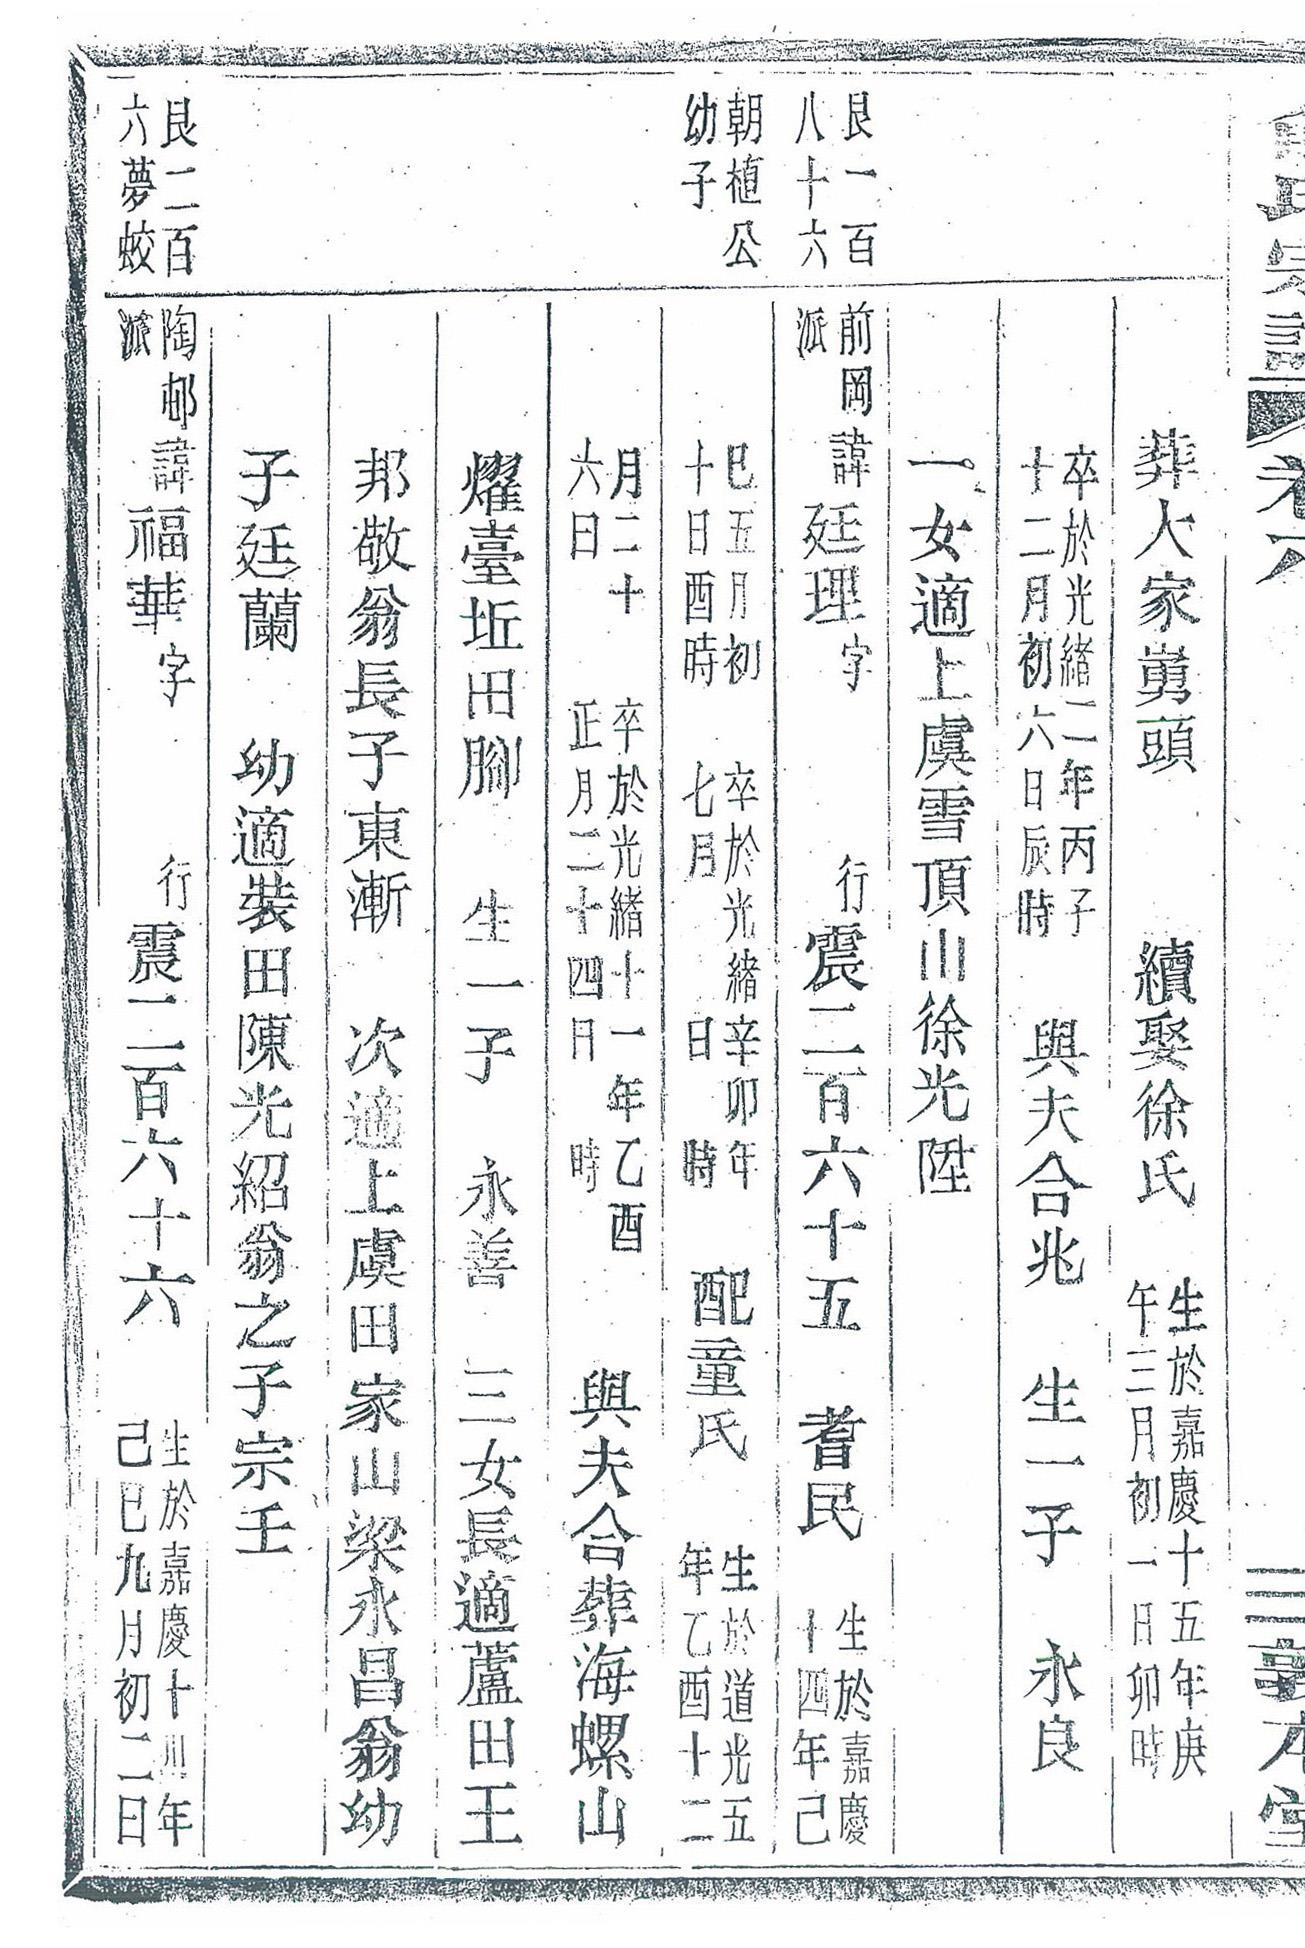 氏宗譜
卷六
敦本堂
葬大家嶴頭　續娶徐氏　生於嘉慶十五年庚
午三月初一日卯時
卒於光緒二年丙子
十二月初六日辰時　與夫合兆　生一子　永良
一女適上虞雪頂山徐光陞
艮一百
八十六
前岡
派
諱廷理字　行震二百六十五　耆民　生於嘉慶
十四年己
朝植公
幼子
巳五月初
十日酉時　卒於光緒辛卯年
七月　日　時　配童氏　生於道光五
年乙酉十二
月二十
六日　卒於光緒十一年乙酉
正月二十四日　時　與夫合葬海螺山
燿臺坵田腳　生一子　永善　三女長適蘆田王
邦敬翁長子東漸　次適上虞田家山梁永昌翁幼
子廷蘭　幼適裝田陳光紹翁之子宗壬
艮二百
六夢蛟
陶邨
派
諱福華字　行震二百六十六　生於嘉慶十四年
己巳九月初二日